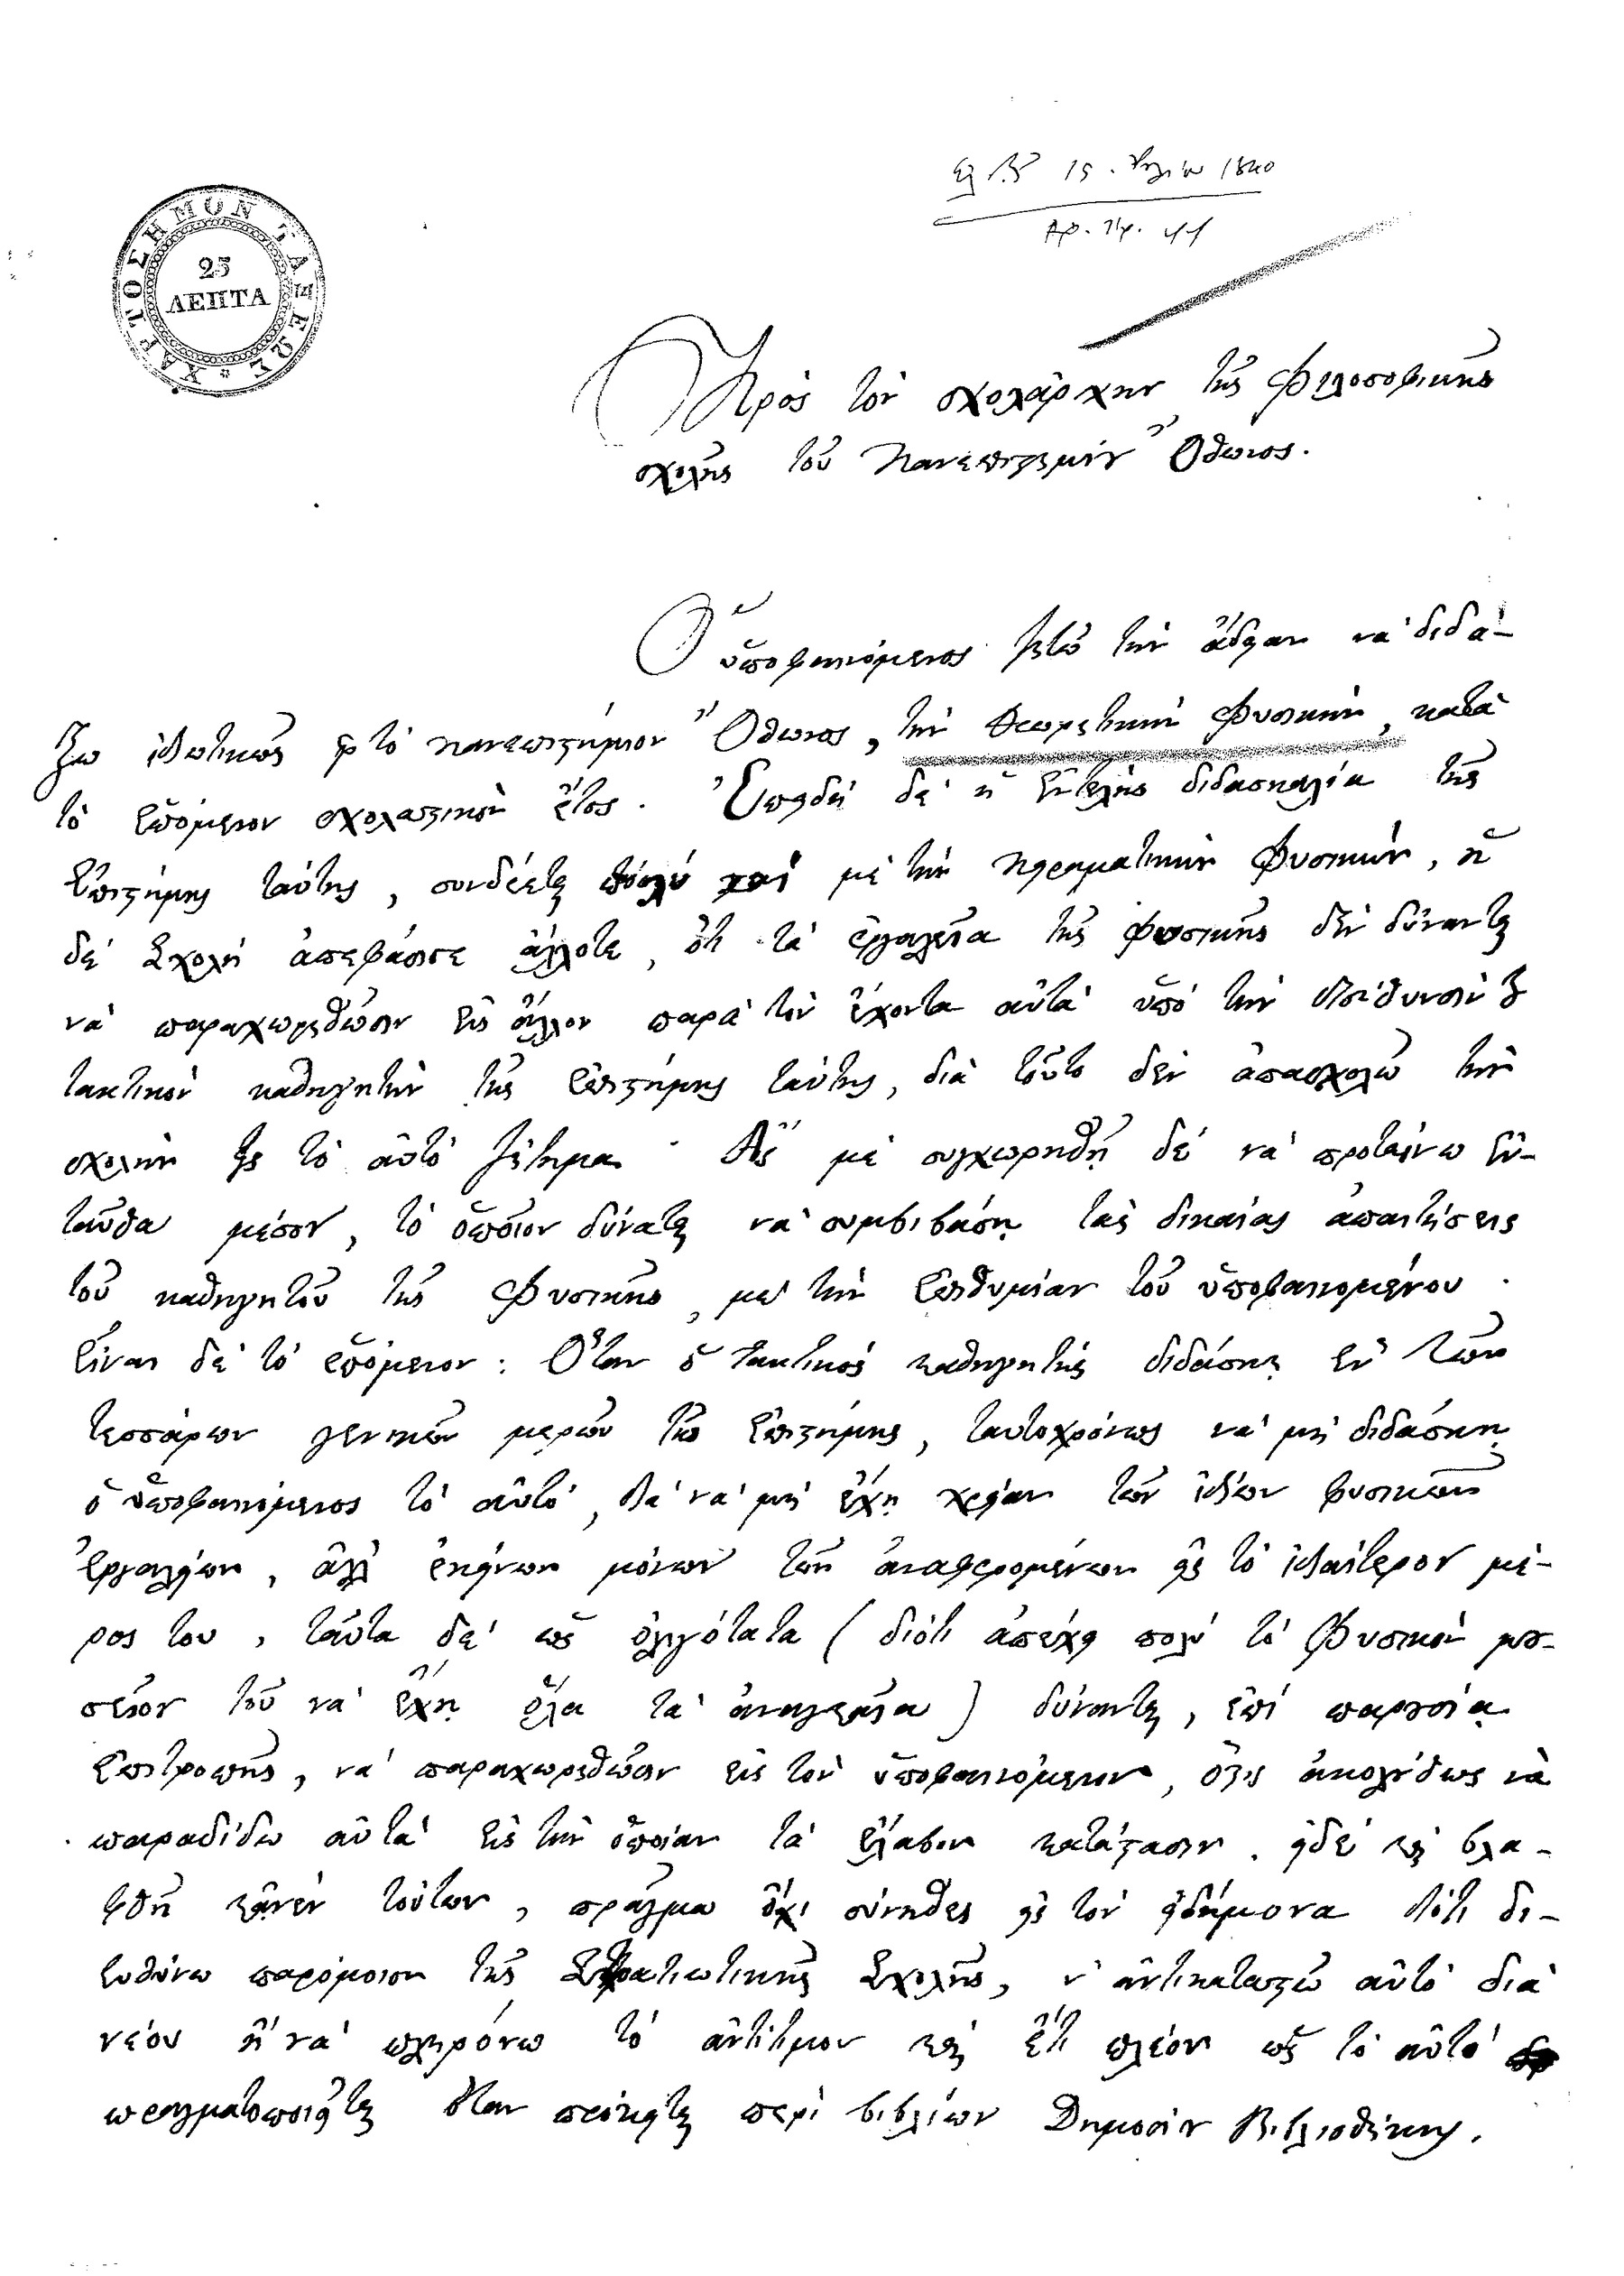 15. Ἰουλίου 1840
Ἀρ. Πρ. 44
ΧΑΡΤΟΣΗΜΟΝ ΤΑΞΕΩΣ
25
ΛΕΠΤΑ
Πρὸς τὸν σχολάρχην τῆς Φιλοσοφικῆς
σχολῆς τοῦ Πανεπιστημίου Ὄθωνος.
Ὁ ὑποφαινόμενος ζητῶ τὴν ἄδειαν νὰ διδά-
ξω ἰδιωτικῶς εἰς τὸ πανεπιστήμιον Ὄθωνος, τὴν Θεωρητικὴν Φυσικὴν, κατὰ
τὸ ἑπόμενον σχολαστικὸν ἔτος. Ἐπειδὴ δὲ ἡ ἐντελὴς διδασκαλία τῆς
ἐπιστήμης ταύτης, συνδέεται πολὺ καὶ μὲ τὴν πειραματικὴν Φυσικὴν, ἡ
δὲ Σχολὴ ἀπεφάσισε ἄλλοτε, ὅτι τὰ ἐργαλεῖα τῆς Φυσικῆς δὲν δύνανται
νὰ παραχωρηθῶσιν εἰς ἄλλον παρὰ τὸν ἔχοντα αὐτὰ ὑπὸ τὴν διεύθυνσίν του
τακτικὸν καθηγητὴν τῆς ἐπιστήμης ταύτης, διὰ τοῦτο δὲν ἀπασχολῶ τὴν
σχολὴν εἰς τὸ αὐτὸ ζήτημα. Ἂς μὲ συγχωρηθῇ δὲ νὰ προτείνω ἐν-
ταῦθα μέσον, τὸ ὁποῖον δύναται νὰ συμβιβάσῃ τὰς δικαίας ἀπαιτήσεις
τοῦ καθηγητοῦ τῆς Φυσικῆς, μὲ τὴν ἐπιθυμίαν τοῦ ὑποφαινομένου.
Εἶναι δὲ τὸ ἑπόμενον: Ὅταν ὁ τακτικὸς καθηγητὴς διδάσκῃ ἓν τῶν
τεσσάρων γενικῶν μερῶν τῆς ἐπιστήμης, ταυτοχρόνως νὰ μὴ διδάσκῃ
ὁ ὑποφαινόμενος τὸ αὐτὸ, διὰ νὰ μὴ ἔχῃ χρείαν τῶν ἰδίων φυσικῶν
ἐργαλείων, ἀλλ' ἐκείνων μόνων τῶν ἀναφερομένων εἰς τὸ ἰδιαίτερον μέ-
ρος του, ταῦτα δὲ ὡς ὀλιγότατα (διότι ἀπέχει πολὺ τὸ Φυσικὸν μου-
σεῖον τοῦ νὰ ἔχῃ ὅλα τὰ ἀναγκαῖα) δύνανται, ἐπὶ παρουσίᾳ
ἐπιτροπῆς, νὰ παραχωρηθῶσιν εἰς τὸν ὑποφαινόμενον, ὅστις ἀκολούθως νὰ
παραδίδω αὐτὰ εἰς τὴν ὁποίαν τὰ ἔλαβον κατάστασιν. εἰδὲ καὶ βλα-
φθῇ κανὲν τούτων, πρᾶγμα ὄχι σύνηθες εἰς τὸν εἰδήμονα διότι δι-
ευθύνω παρόμοιον τῆς Στρατιωτικῆς Σχολῆς, ν' ἀντικαταστῶ αὐτὸ διὰ
νέου ἢ νὰ πληρόνω τὸ ἀντίτιμον καὶ ἔτι πλέον ὡς τὸ αὐτὸ
πραγματοποιεῖται ὅταν πρόκειται περὶ βιβλίων Δημοσίου Βιβλιοθήκης.